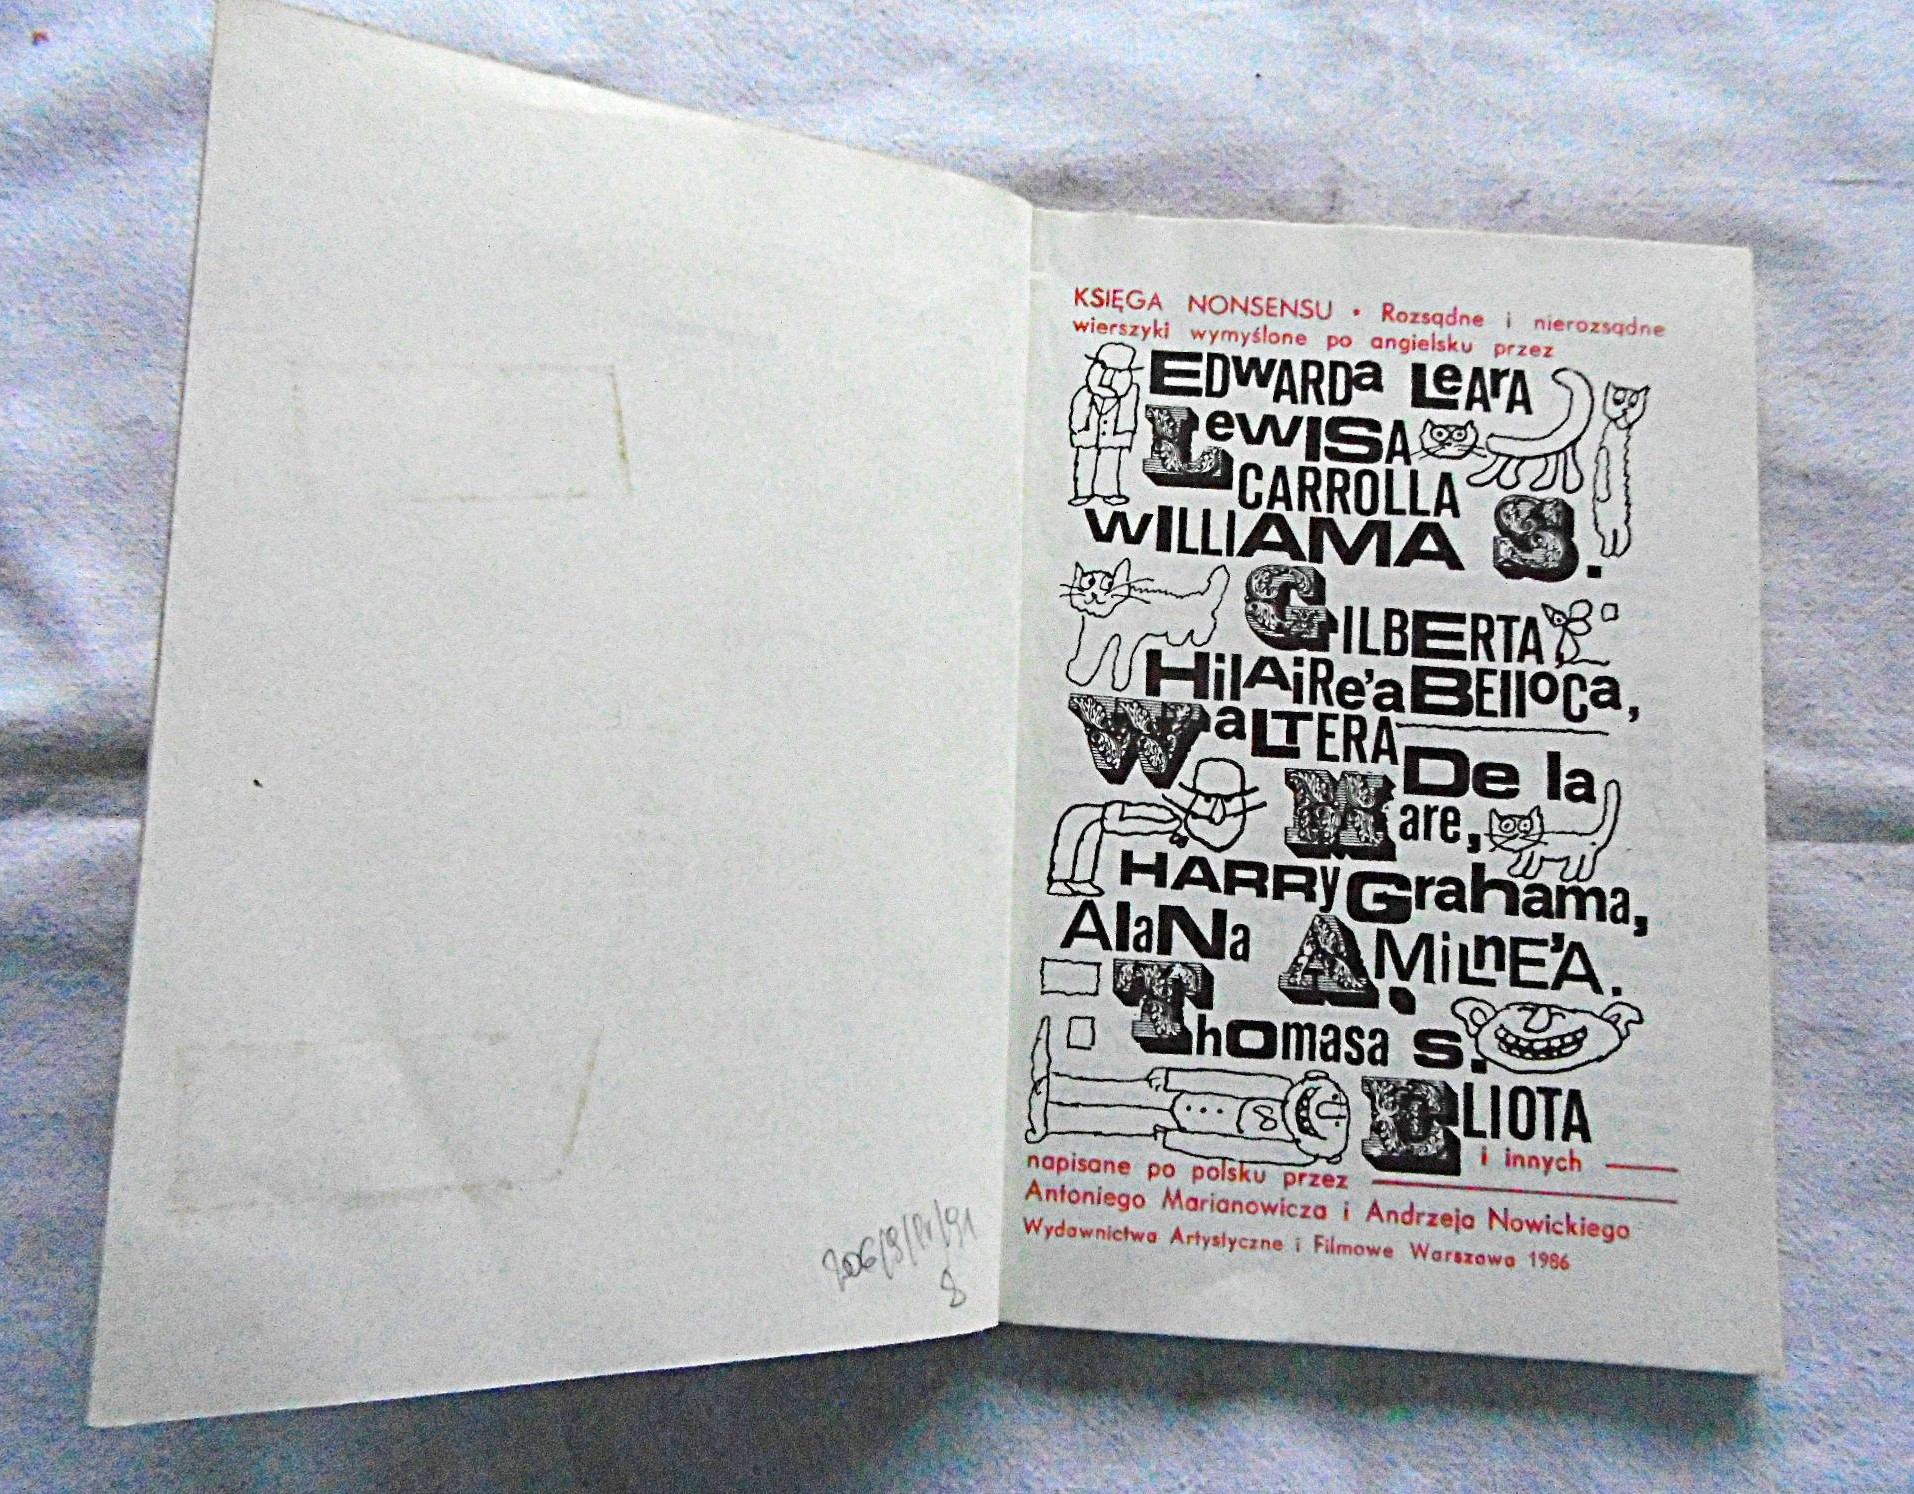 KSIĘGA NONSENSU • Rozsądne i nierozsądne
wierszyki wymyślone po angielsku przez
EDWARDa LeArA
LewISA
CARROLLA
wILLIAMA S.
GILBERTA
HilAiRe'a BElloCa,
WaLTERA
De la
Mare,
HARRy Grahama,
AlaNa A. MiLnE'A.
Thomasa s.
ELIOTA
i innych
napisane po polsku przez
Antoniego Marianowicza i Andrzeja Nowickiego
Wydawnictwa Artystyczne i Filmowe Warszawa 1986
8